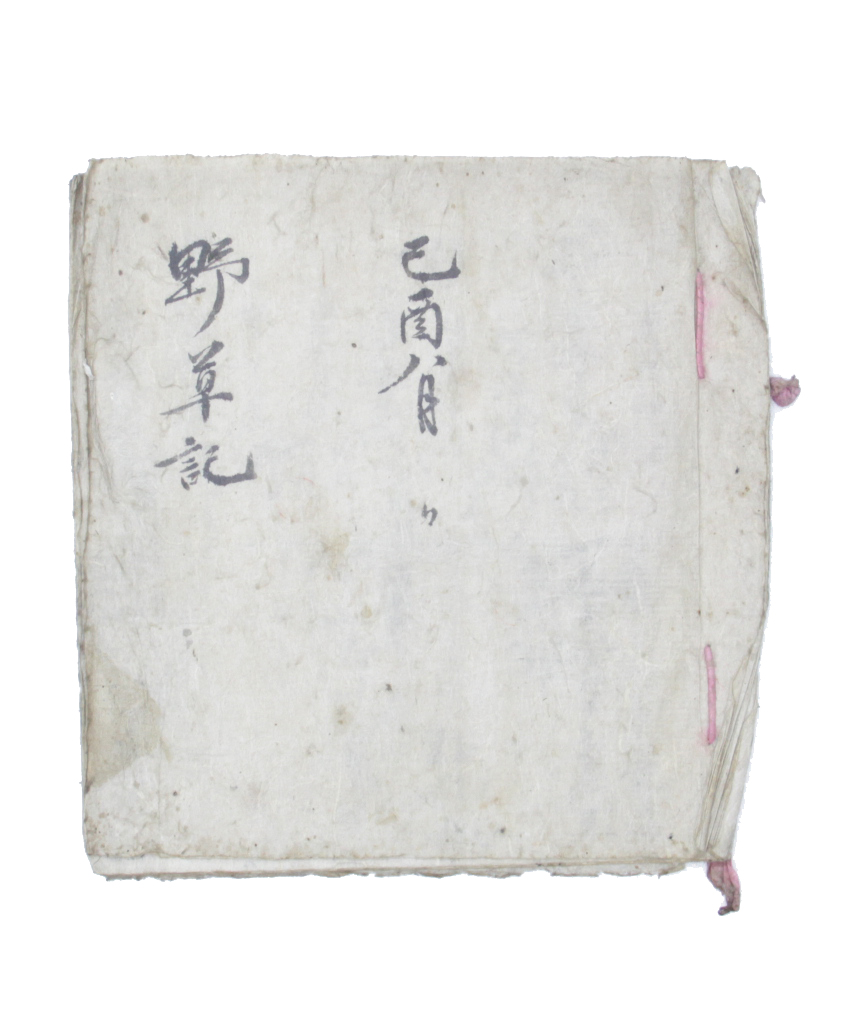 己酉八月
野草記